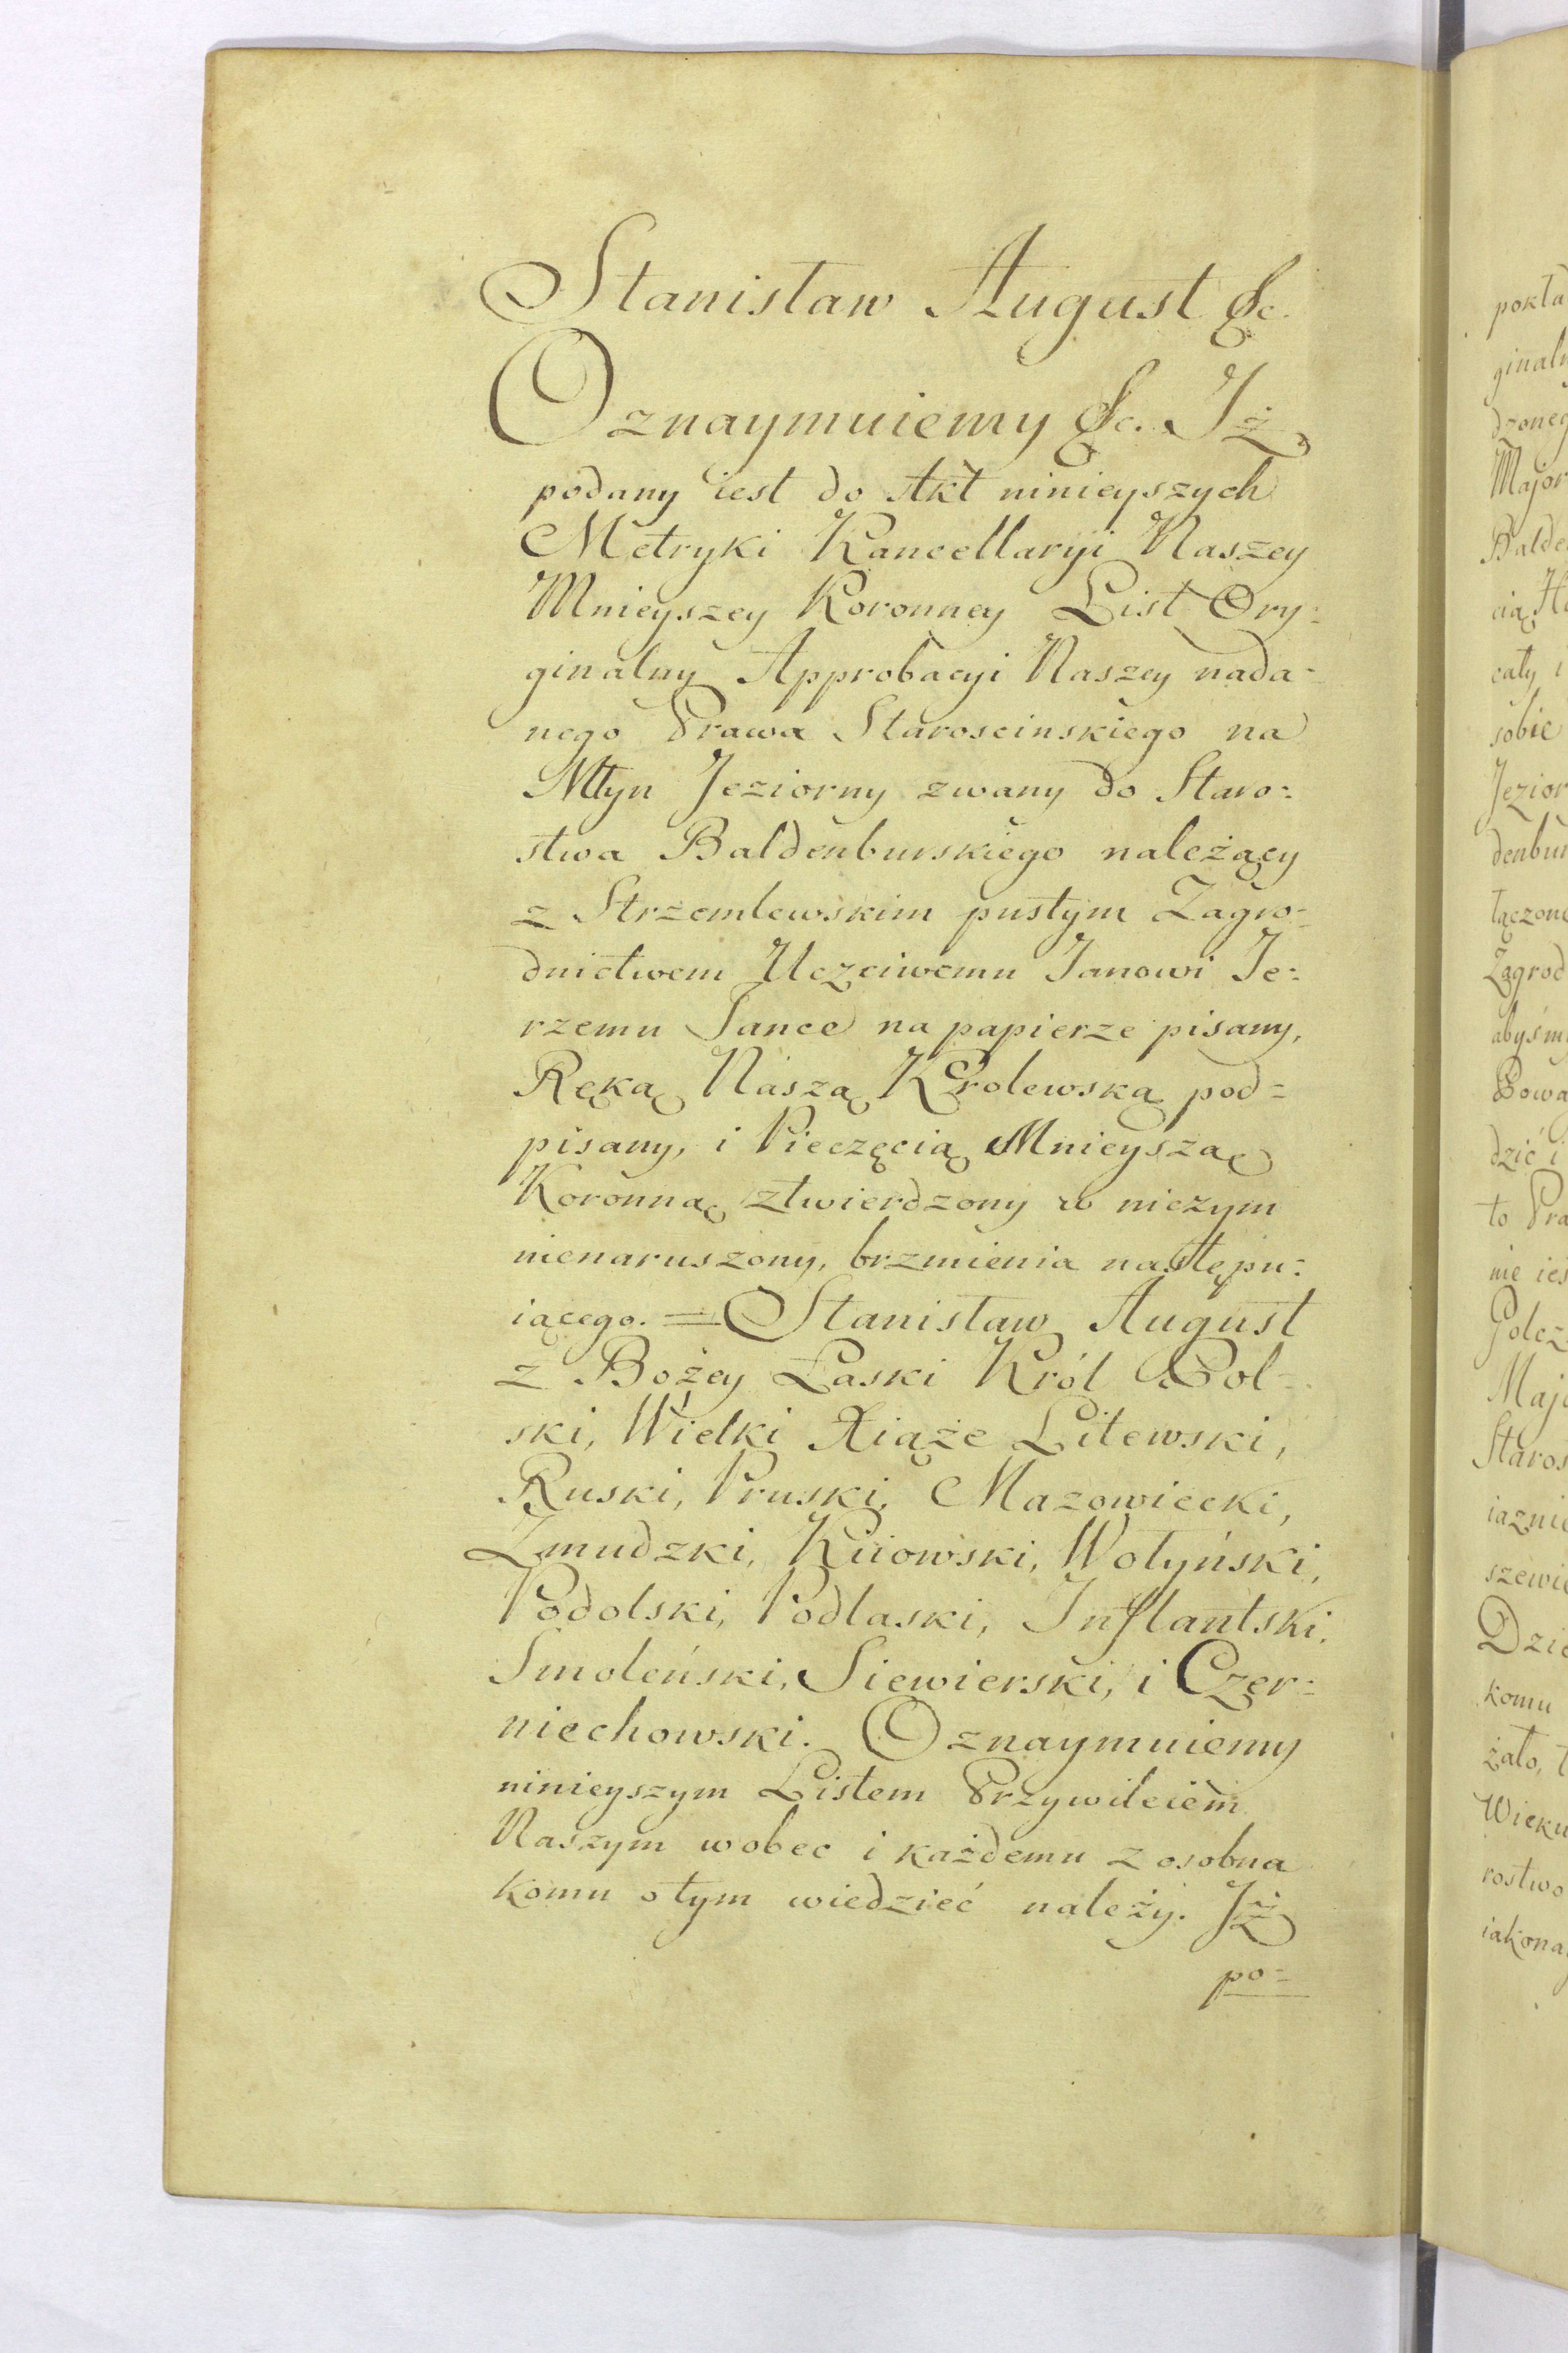 Stanisław August &c.
Oznaymuiemy &c. Iż
podany iest do Akt ninieyszych
Metryki Kancellaryi Naszey
Mnieyszey Koronney List Ory=
ginalny Approbacyi Naszey nada=
nego Prawa Staroscinskiego na
Młyn Jeziorny zwany do Staro=
stwa Baldenburskiego należący
z Strzemlewskim pustym Zagro=
dnictwem Uczciwemu Janowi Je=
rzemu Jance na papierze pisany,
Ręką Naszą Krolewską pod=
pisany, i Pieczęcią Mnieyszą
Koronną ztwierdzony w niczym
nienaruszony, brzmienia następu=
iącego. = Stanisław August
z Bożey Łaski Król Pol=
ski, Wielki Xiąże Litewski,
Ruski, Pruski, Mazowiecki,
Zmudzki, Kiiowski, Wołyński,
Podolski, Podlaski, Inflantski,
Smoleński, Siewierski, i Czer=
niechowski. Oznaymuiemy
ninieyszym Listem Przywileiem
Naszym wobec i każdemu z osobna
komu o tym wiedzieć należy. Iż
po=
pokła
ginaln
dzoneg
Major
Balde
cią
cały i
sobie
Jezior
denbur
łączone
Zagrod
abyśm
Powa
dzić i
to Pra
nie ies
Golcz
Majo
Staros
iaznie
szewie
Dzie
komu
żało, t
Wieku
rostwo
iakona